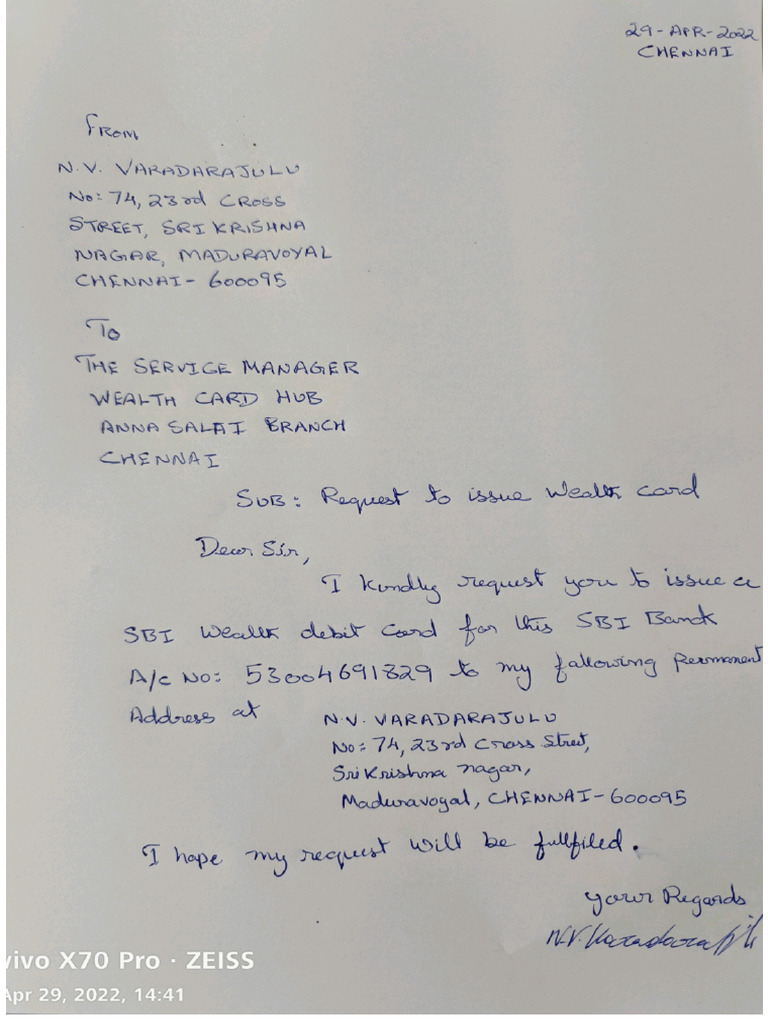 29-APR-2022
CHENNAI
From
N.V. VARADARAJULU
No: 74, 23rd CROSS
STREET, SRI KRISHNA
NAGAR, MADURAVOYAL
CHENNAI- 600095
To
THE SERVICE MANAGER
WEALTH CARD HUB
ANNA SALAI BRANCH
CHENNAI
SUB: Request to issue Wealth Card
Dear Sir,
I kindly request you to issue a
SBI Wealth debit Card for this SBI Bank
A/c No: 53004691829 to my following Permanent
Address at
N.V. VARADARAJULU
No: 74, 23rd Cross Street,
Sri Krishna nagar,
Maduravoyal, CHENNAI-600095
I hope my request will be fullfiled.
your Regards
N.V. Varadarajulu
vivo X70 Pro · ZEISS
Apr 29, 2022, 14:41